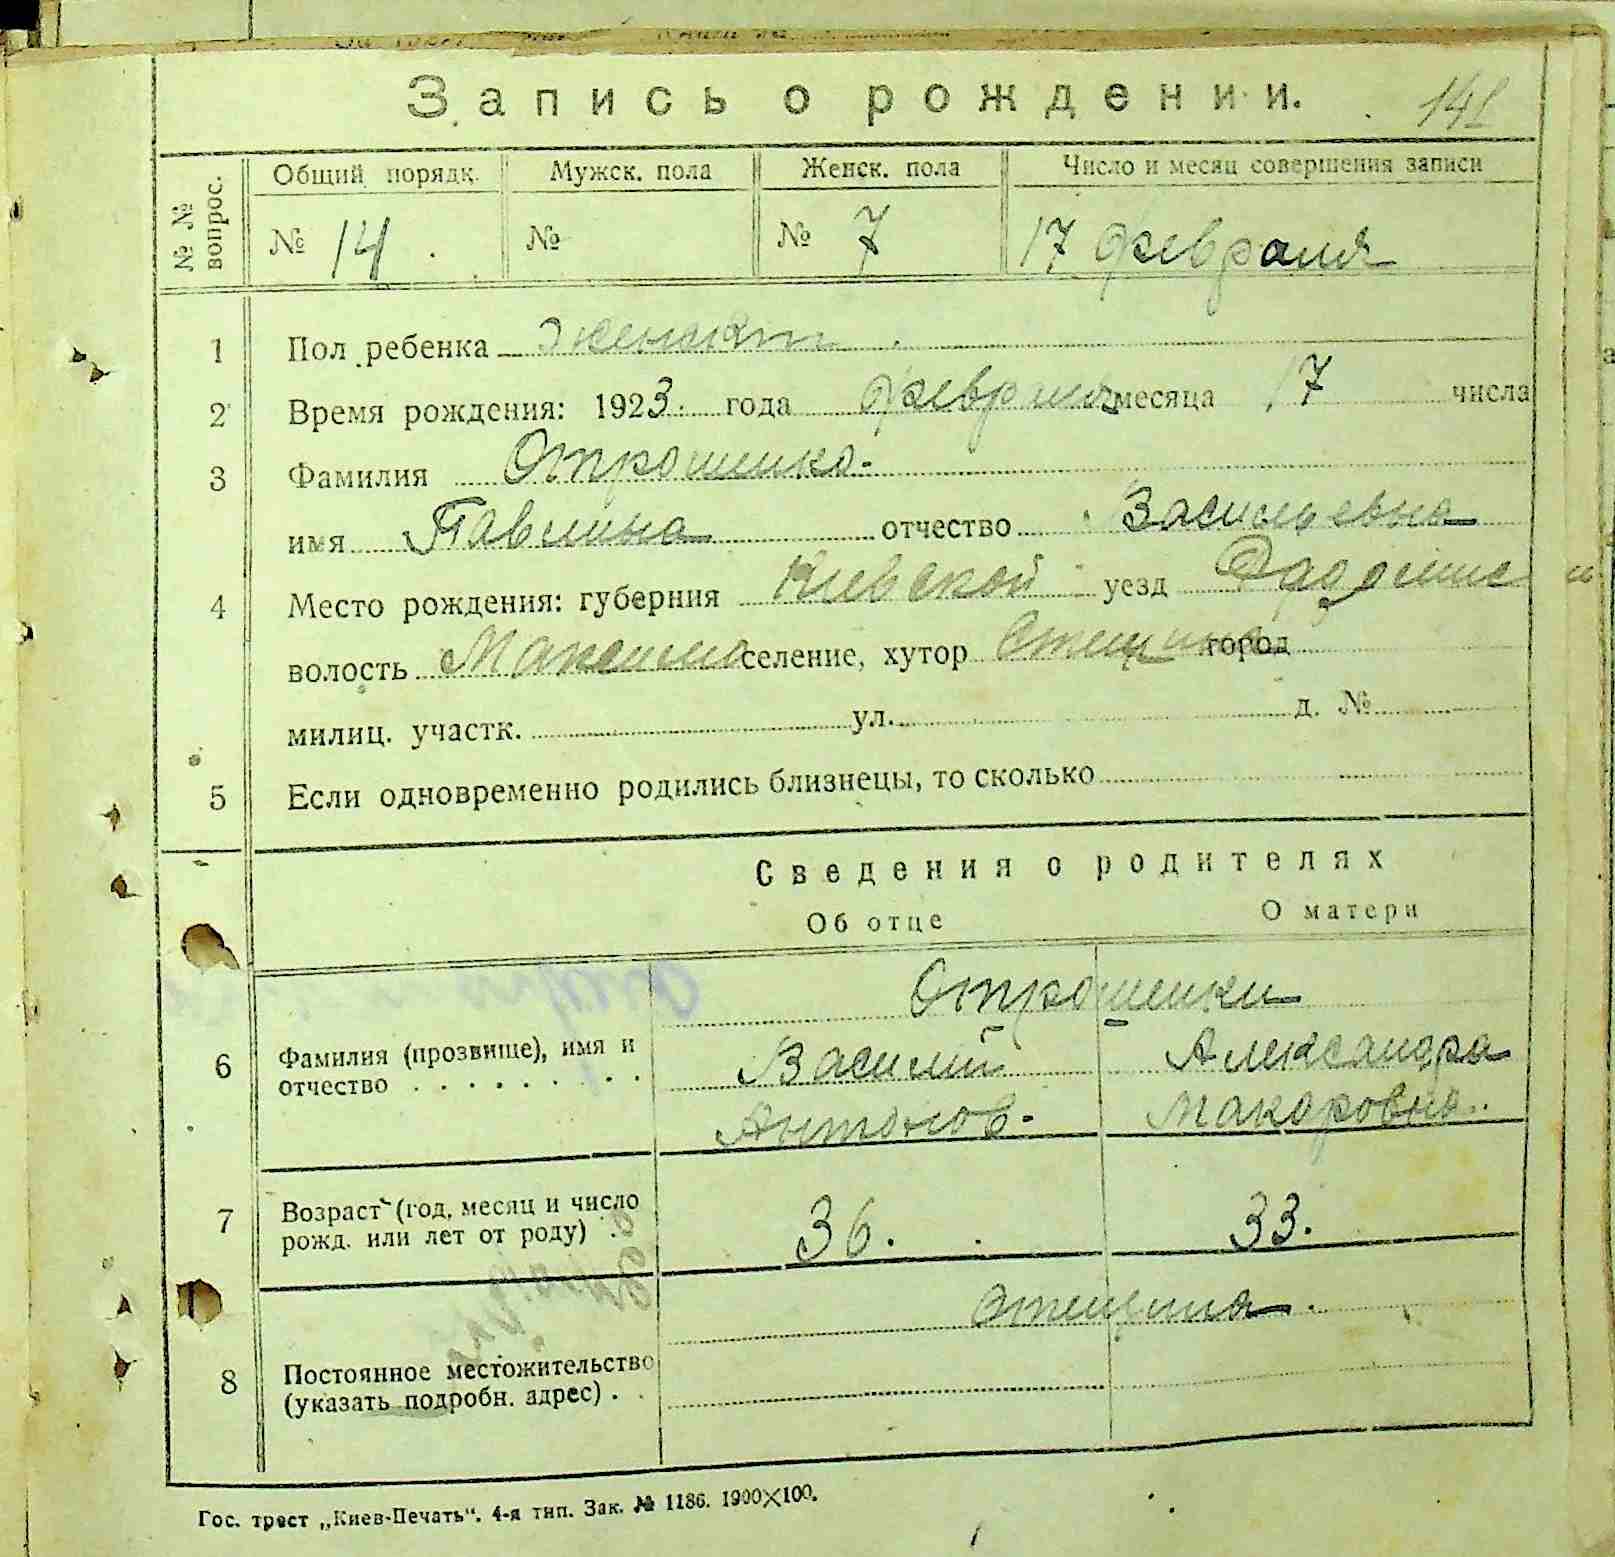 Запись о рождении.
Общий порядк. Мужск. пола Женск. пола Число и месяц совершения записи
№ № вопрос.
№ 14 № № 7 17 февраля
1 Пол ребенка
2 Время рождения: 1923 года февраля месяца 17 числа
3 Фамилия Отрошенко
имя Павлина отчество Васильевна
4 Место рождения: губерния Киевской уезд
волость селение, хутор город
милиц. участк. ул. д. №
5 Если одновременно родились близнецы, то сколько
Сведения о родителях
Об отце О матери
Отрошенки
6 Фамилия (прозвище), имя и Василий Александра
отчество Антонов Макаровна
7 Возраст (год, месяц и число
рожд. или лет от роду) 36. 33.
8 Постоянное местожительство
(указать подробн. адрес)
Гос. трест „Киев-Печать“. 4-я тип. Зак. № 1186. 1900×100.